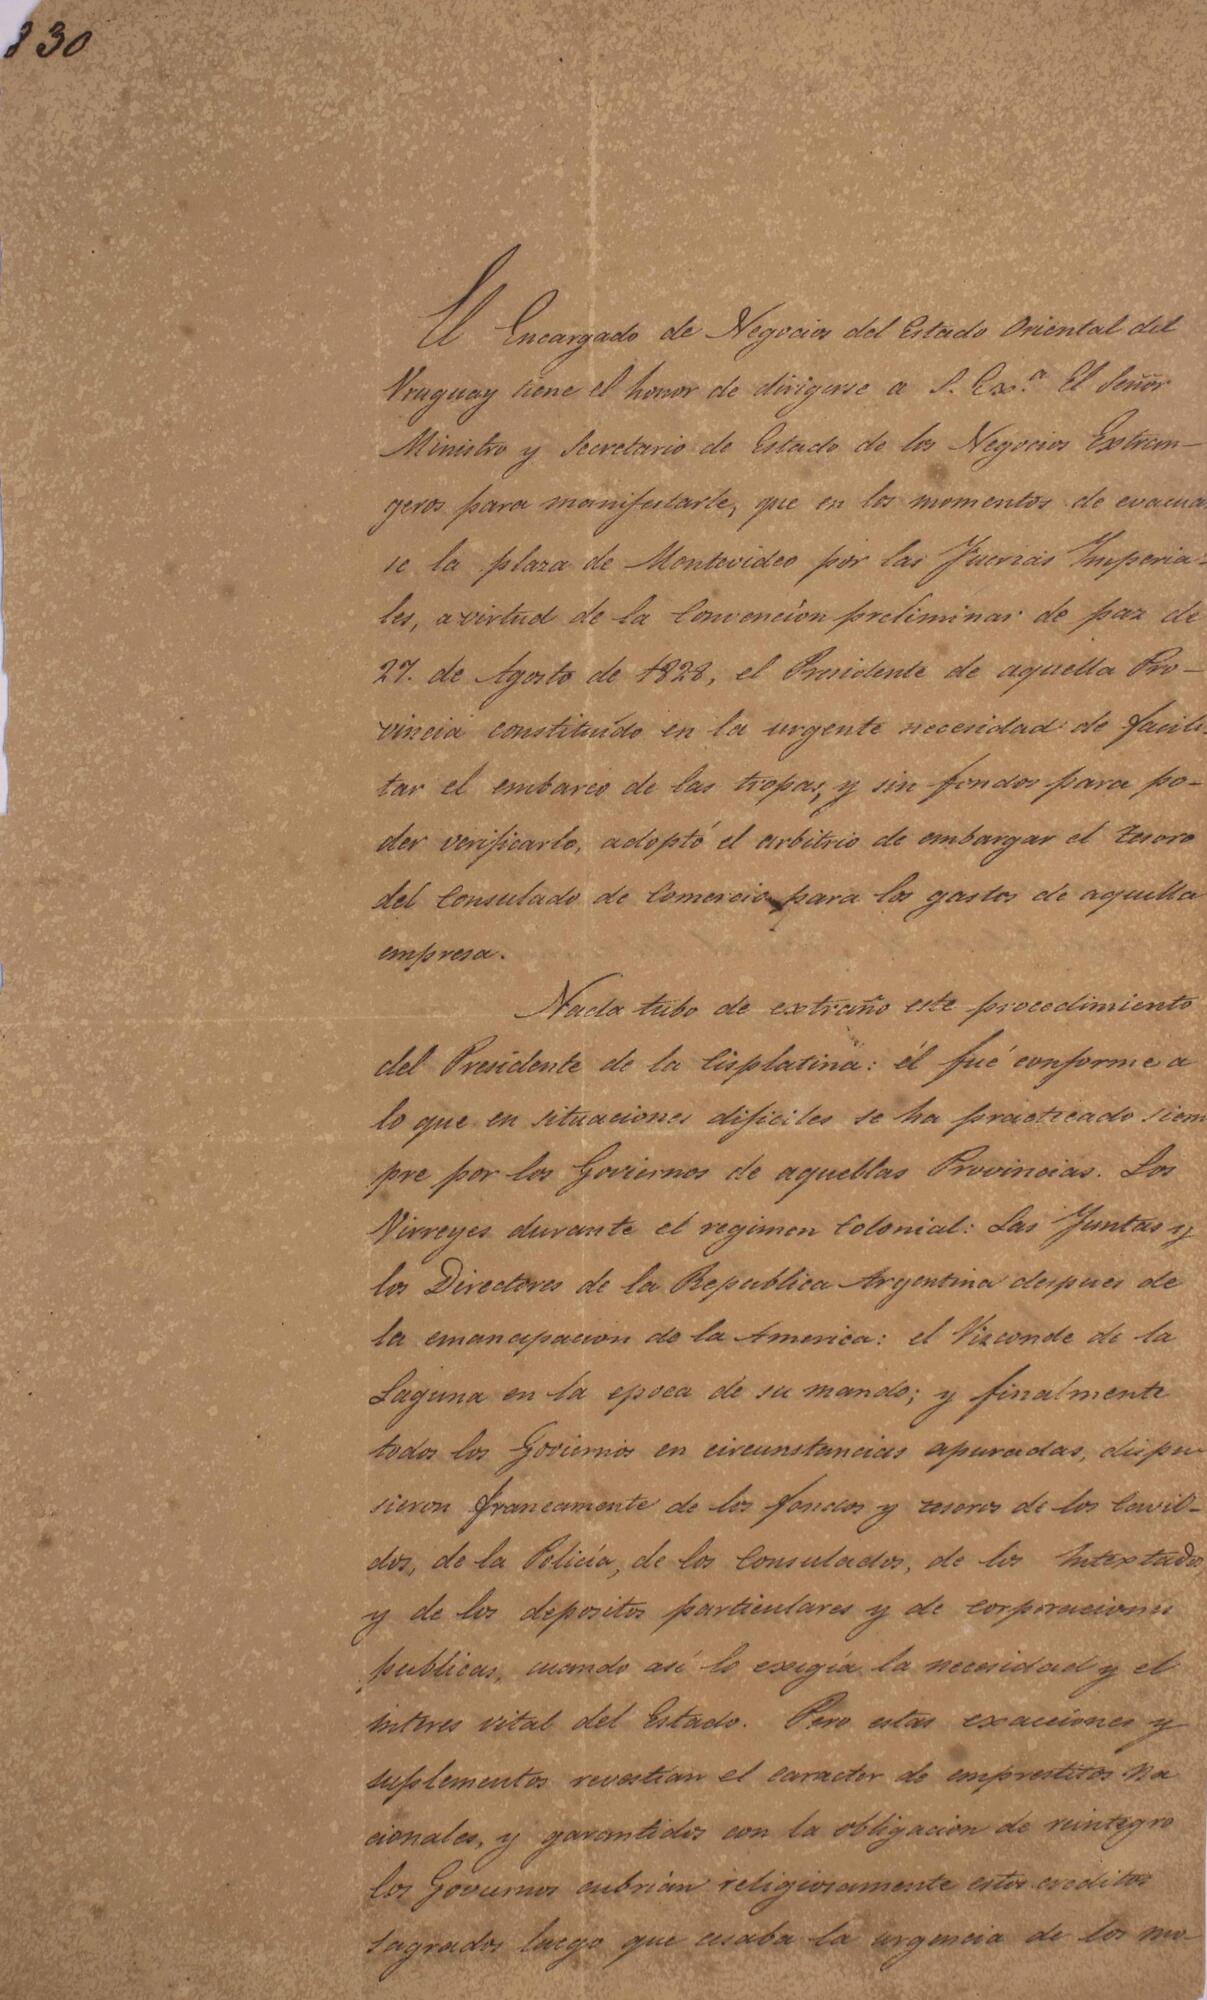 830
El Encargado de Negocios del Estado Oriental del
Uruguay tiene el honor de dirigerse a S. Ex.ª El Señor
Ministro y Secretario de Estado de los Negocios Extran-
geros para manifestarle, que en los momentos de evacuar
se la plaza de Montevideo por las Fuerzas Imperia-
les, a virtud de la Convencion preliminar de paz de
27. de Agosto de 1828, el Presidente de aquella Pro-
vincia constituído en la urgente necesidad de facili-
tar el embarco de las tropas, y sin fondos para po-
der verificarlo, adoptó el arbitrio de embargar el tesoro
del Consulado de Comercio para los gastos de aquella
empresa.
Nada tubo de extraño este procedimiento
del Presidente de la Cisplatina: él fué conforme a
lo que en situaciones dificiles se ha practicado siem
pre por los Goviernos de aquellas Provincias. Los
Virreyes durante el regimen Colonial: Las Juntas y
los Directores de la Republica Argentina despues de
la emancipacion de la America: el Vizconde de la
Laguna en la epoca de su mando; y finalmente
todos los Goviernos en circunstancias apuradas, dispu-
sieron francamente de los fondos y tesoros de los Cavil-
dos, de la Policía, de los Consulados, de los Intextados
y de los depositos particulares y de corporaciones
publicas, cuando así lo exegía la necesidad y el
interes vital del Estado. Pero estas exacciones y
suplementos revestían el caracter de emprestitos na
cionales, y garantidos con la obligacion de reintegro
los Goviernos cubrían religiosamente estos creditos
sagrados luego que cesaba la urgencia de los mo-